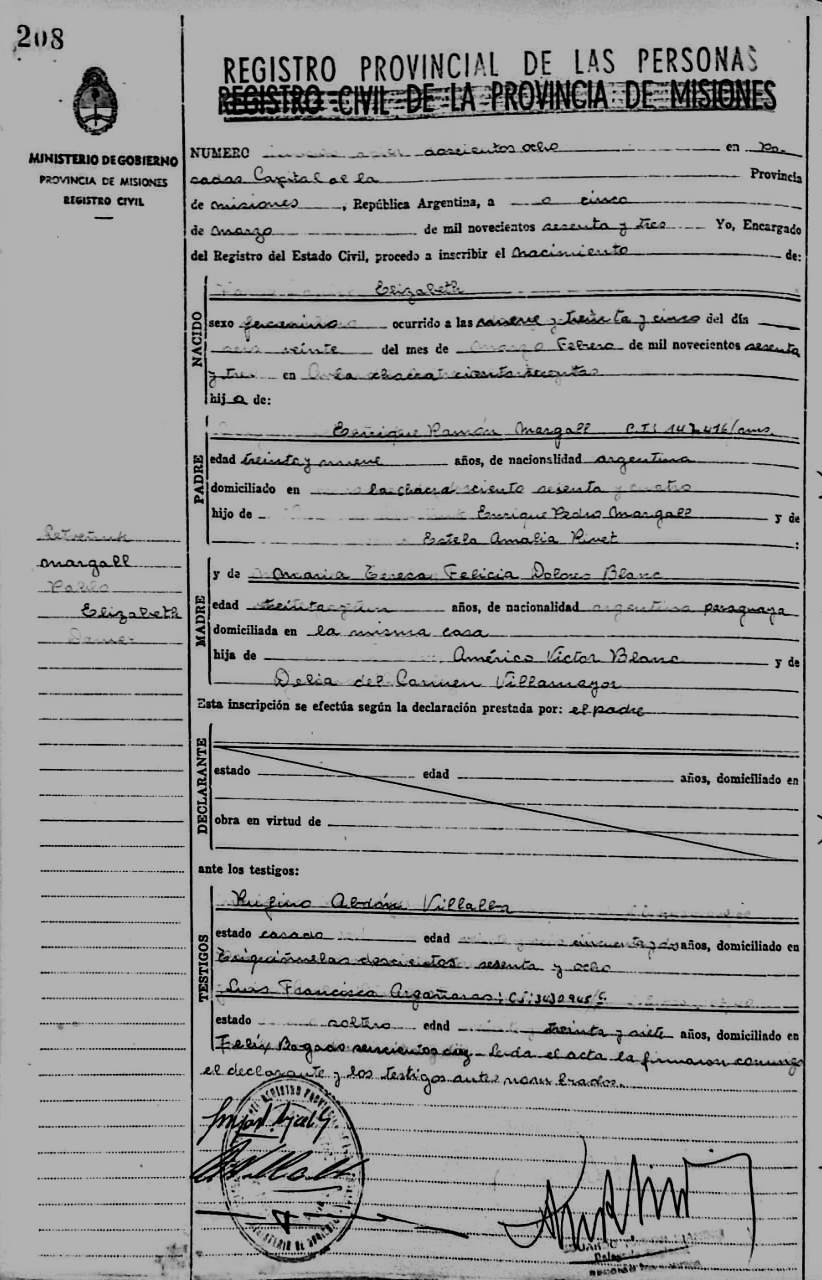 208
MINISTERIO DE GOBIERNO
PROVINCIA DE MISIONES
REGISTRO CIVIL
REGISTRO PROVINCIAL DE LAS PERSONAS
REGISTRO CIVIL DE LA PROVINCIA DE MISIONES
NUMERO doscientos ocho en Po-
sadas Capital de la Provincia
de misiones, República Argentina, a cinco
de marzo de mil novecientos sesenta y tres Yo, Encargado
del Registro del Estado Civil, procedo a inscribir el nacimiento de:
NACIDO
Elizabeth
sexo femenino ocurrido a las nueve y treinta y cinco del día
veinte del mes de Febrero de mil novecientos sesenta
y tres en la chacra ciento sesenta
hija de:
PADRE
Enrique Ramón Margall C.I: 147.416/
edad treinta y nueve años, de nacionalidad argentina
domiciliado en la chacra ciento sesenta y cuatro
hijo de Enrique Pedro Margall y de
Estela Amalia Rivet :
MADRE
y de Maria Teresa Felicia Dolores Blanc
edad treinta y un años, de nacionalidad paraguaya
domiciliada en la misma casa
hija de Américo Victor Blanc y de
Delia del Carmen Villamayor
Esta inscripción se efectúa según la declaración prestada por: el padre
DECLARANTE
estado edad años, domiciliado en
obra en virtud de
ante los testigos:
TESTIGOS
Rufino Abdón Villalba
estado casado edad cincuenta y dos años, domiciliado en
doscientos sesenta y ocho
Luis Francisco Argañaras: C.I:
estado soltero edad treinta y siete años, domiciliado en
Felix Bogado seiscientos diez Leida el acta la firmaron conmigo
el declarante y los testigos antes nombrados.
margall
Elizabeth